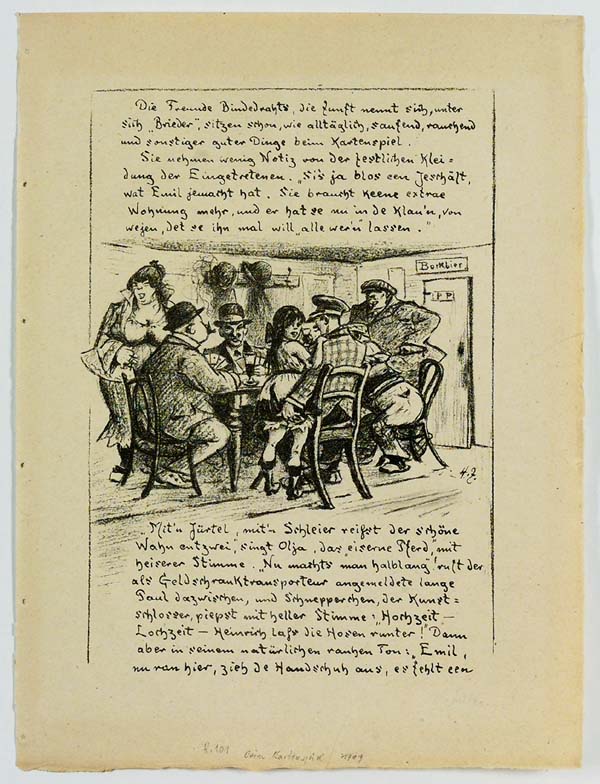 Die Freunde Bindedrahts, die Zunft nennt sich, unter
sich „Brieder“, sitzen schon, wie alltäglich, saufend, rauchend
und sonstiger guter Dinge beim Kartenspiel.
Sie nehmen wenig Notiz von der festlichen Klei=
dung der Eingetretenen. „Sis ja blos een Jeschäft,
wat Emil jemacht hat. Sie braucht keene extrae
Wohnung mehr, und er hat se nu in de Klau'n, von
wejen, det se ihn mal will „alle wer'n“ lassen.“
Bockbier
P P
H. Z.
Mit'n Jürtel, mit'n Schleier reißt der schöne
Wahn entzwei, singt Olja, das eiserne Pferd, mit
heiserer Stimme. „Nu machts man halblang“! ruft der
als Geldschranktransporteur angemeldete lange
Paul dazwischen, und Schnepperchen, der Kunst=
schlosser, piepst mit heller Stimme: „Hochzeit –
Lochzeit – Heinrich laß die Hosen runter!“ Dann
aber in seinem natürlichen rauhen Ton: „Emil,
nu ran hier, zieh de Handschuh aus, es fehlt een
101
Beim Kartenspiel